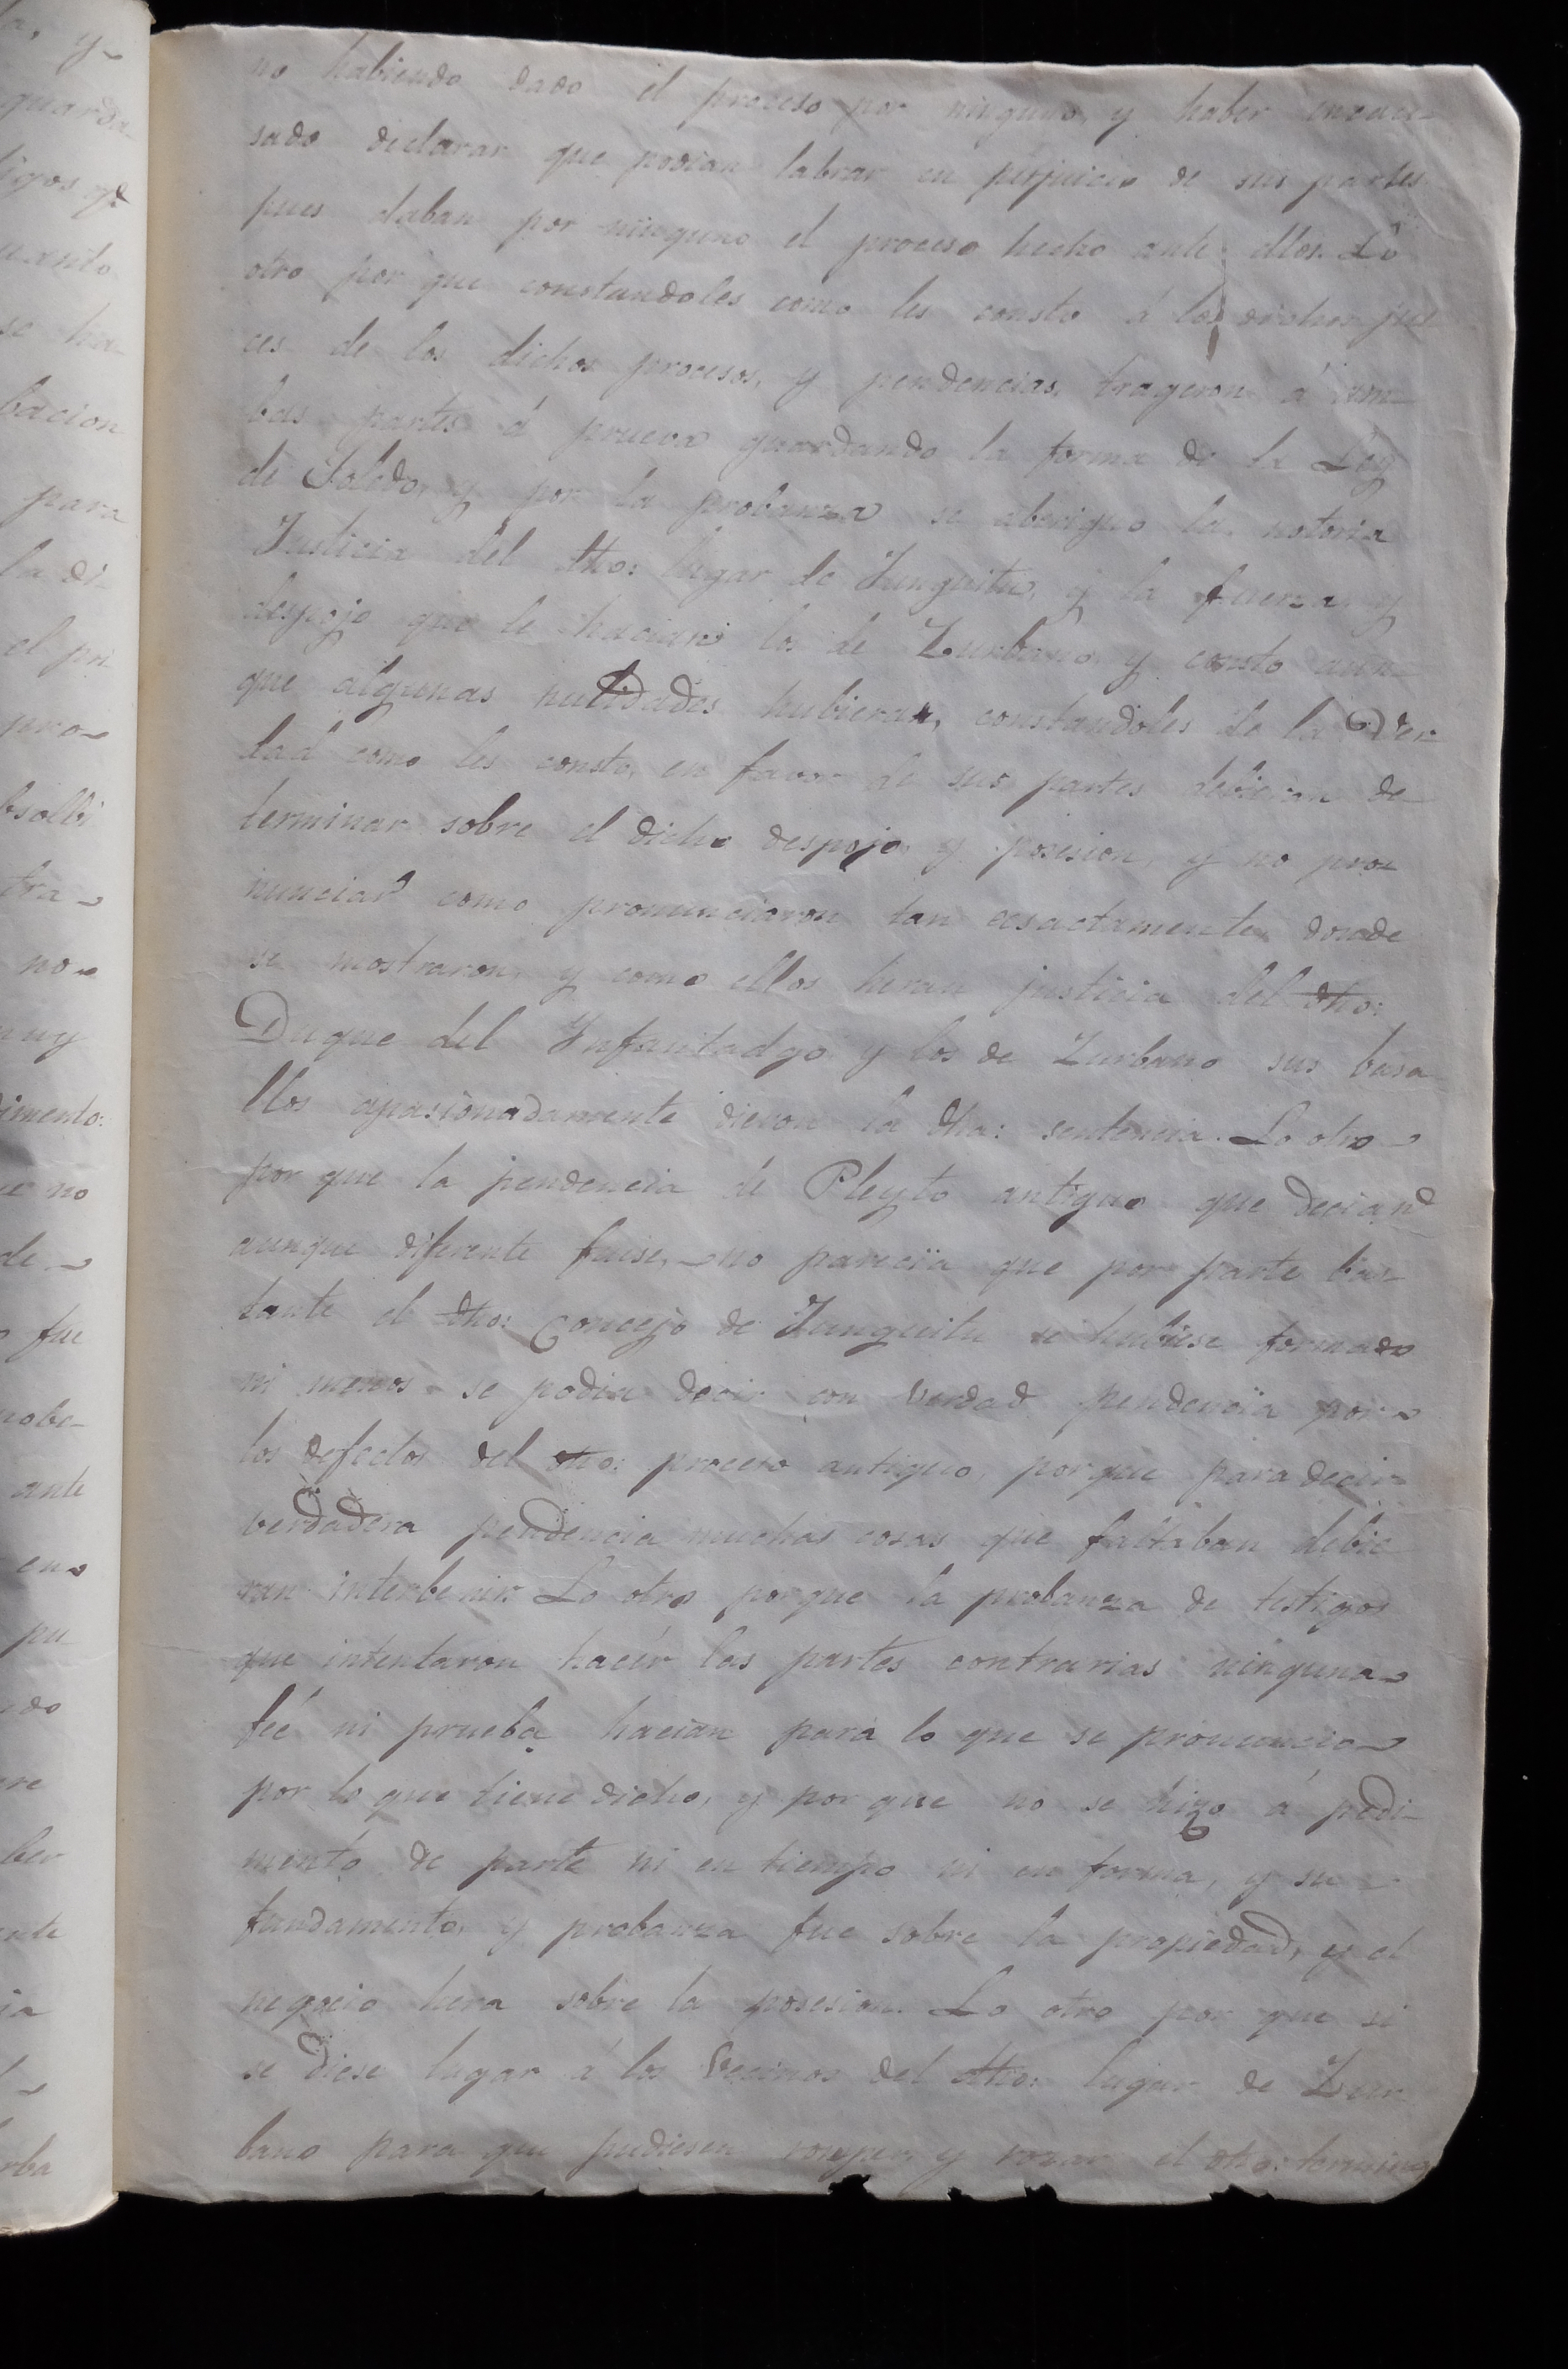 no habiendo dado el proceso por ninguno, y haber
sado declarar que podian labrar en perjuicio de sus partes
pues daban por ninguno el proceso hecho ante ellos. Lo
otro por que constandoles como les consto á los dichos jue
ces de los dichos procesos, y pendencias, trageron á am-
bas partes á prueva guardando la forma de la Ley
de Toledo, y por la probanza se aberiguo la notoria
Justicia del dho: lugar de Junguitu, y la fuerza y
despojo que le hacian los de Zurbano, y consto aun-
que algunas nulidades hubieran, constandoles de la Ver-
dad como les consto, en favor de sus partes debieran de-
terminar sobre el dicho despojo, y posesion, y no pro-
nunciar como pronunciaron tan esactamente donde
se mostraron, y como ellos heran justicia del dho:
Duque del Infantadgo y los de Zurbano sus basa-
llos apasionadamente dieron la dha: sentencia. Lo otro
por que la pendencia de Pleyto antiguo que decian
aunque diferente fuise, no parecia que por parte bas-
tante el dho: Concejo de Junguitu se hubiese formado
ni menos se podia decir con verdad pendencia por
los defectos del dho: proceso antiguo, porque para decir
verdadera pendencia muchas cosas que faltaban debie
ran interbenir. Lo otro porque la probanza de testigos
que intentaron hacér las partes contrarias ninguna
feé ni prueba hacian para lo que se pronuncio
por lo que tiene dicho, y por que no se hizo á pedi-
mento de parte ni en tiempo ni en forma, y su
fundamento, y probanza fue sobre la propiedad, y el
negocio hera sobre la posesion. Lo otro por que si
se diese lugar á los Vecinos del dho: lugar de Zur
bano para que pudiesen romper, y rozar el dho: termino
la, y
guarda
tigos
uanto
se ha-
bacion
para
la di
el pri
pro-
bsolbi
tra-
no-
muy
dimento:
no
de
fue
nobe-
ante
en
pu
ndo
ere
ber
ente
ia
rba